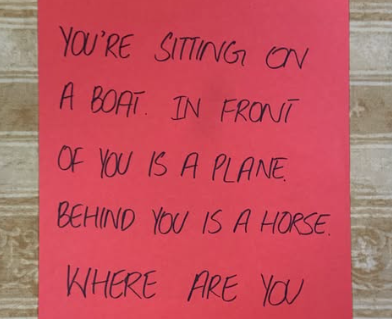 YOU'RE SITTING ON
A BOAT. IN FRONT
OF YOU IS A PLANE.
BEHIND YOU IS A HORSE.
WHERE ARE YOU